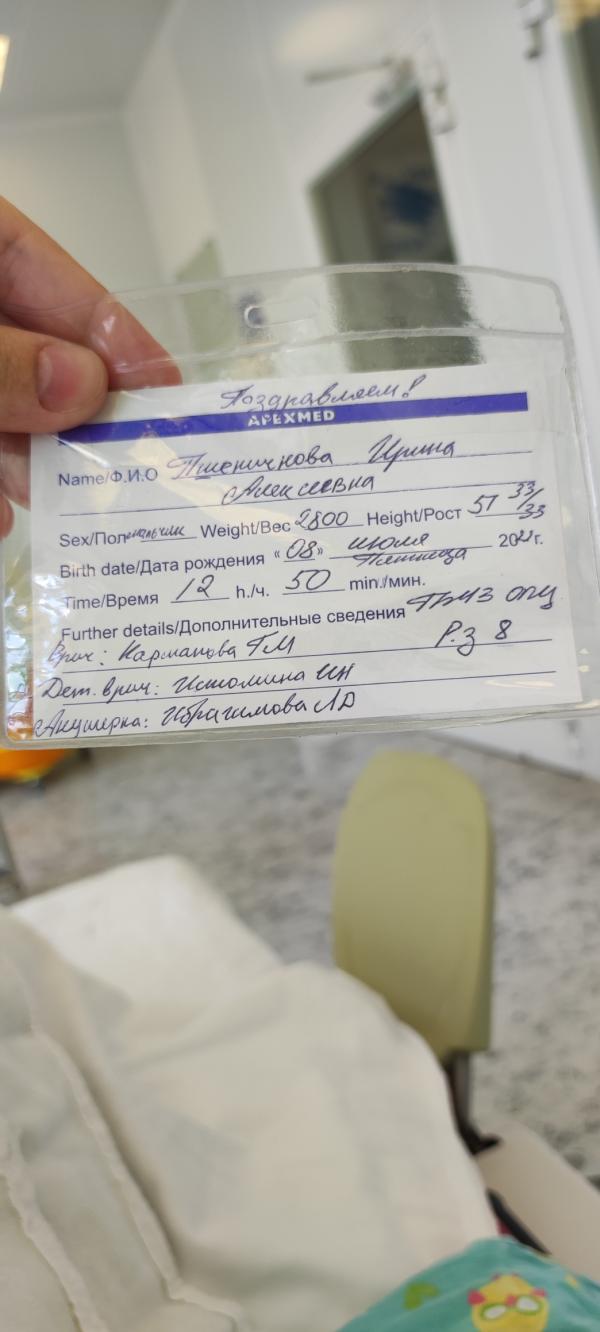 Поздравляем!
APEXMED
Name/Ф.И.О Пшеничнова Ирина
Алексеевна
Sex/Пол мальчик Weight/Вес 2800 Height/Рост 51 33/33
Birth date/Дата рождения «08» июля 2022г.
Пятница
Time/Время 12 h./ч. 50 min./мин.
Further details/Дополнительные сведения ГБУЗ ОПЦ
Врач: Карманова ГМ Р.з 8
Дет. врач: Истомина ИН
Акушерка: Ибрагимова ЛД